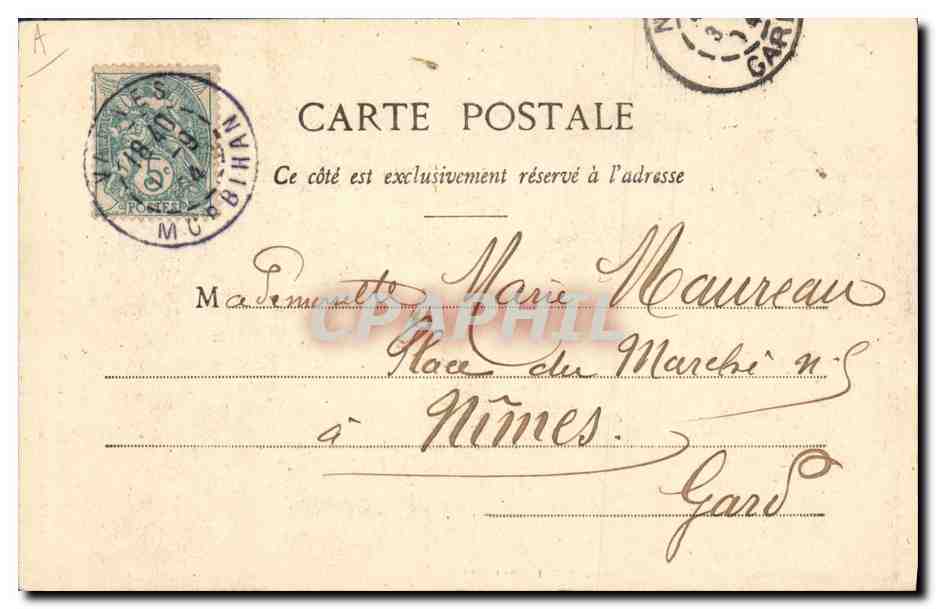 A
GARD
VANNES
18 40
9
4
MORBIHAN
5c
POSTES
CARTE POSTALE
Ce côté est exclusivement réservé à l'adresse
Mademoiselle Marie Maureau
CPAPHIL
Place du Marché n. 5
à Nîmes.
Gard